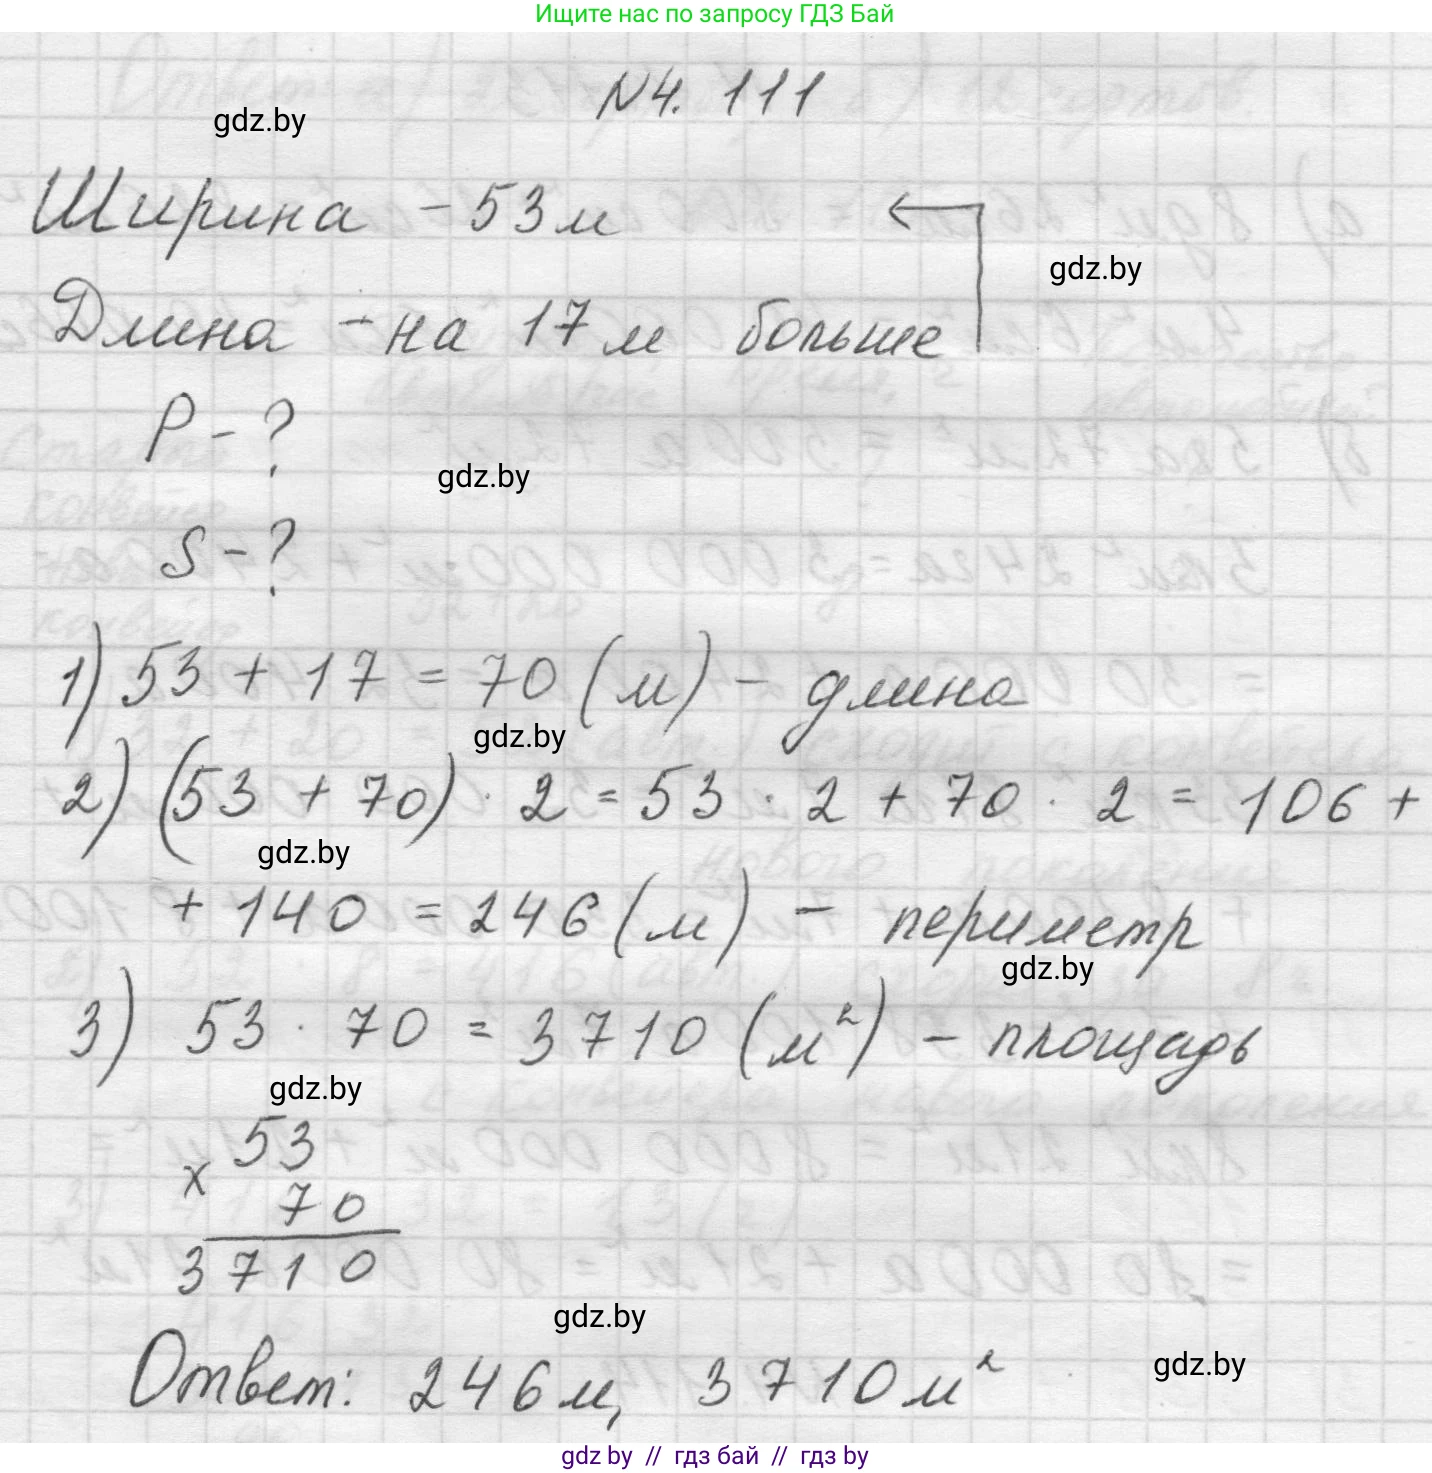 Ищите нас по запросу ГДЗ Бай
№4. 111
gdz.by
Ширина - 53 м
gdz.by
Длина - на 17 м больше
P - ?
gdz.by
S - ?
1) 53 + 17 = 70 (м) - длина
gdz.by
2) (53 + 70) · 2 = 53 · 2 + 70 · 2 = 106 +
gdz.by
+ 140 = 246 (м) - периметр
gdz.by
3) 53 · 70 = 3710 (м²) - площадь
gdz.by
53
x
70
3710
gdz.by
Ответ: 246 м, 3710 м²
gdz.by
gdz.by // гдз бай // gdz.by